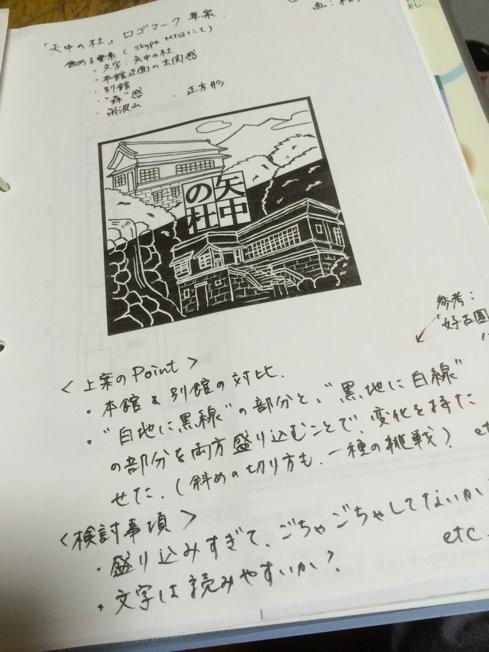 「矢中の杜」ロゴマーク草案.
含める要素(Skype MTGにて)
・文字:矢中の杜
・本館正面の玄関感
・別館
・"森"感
・筑波山
・正方形
画:
矢中
の杜
参考:
好古園
<上案のPoint>
・本館&別館の対比.
・"白地に黒線"の部分と、"黒地に白線"
の部分を両方盛り込むことで、変化を持た
せた.(斜めの切り方も、一種の挑戦)
<検討事項>
・盛り込みすぎて、ごちゃごちゃしてないか?
etc.
・文字は読みやすいか?